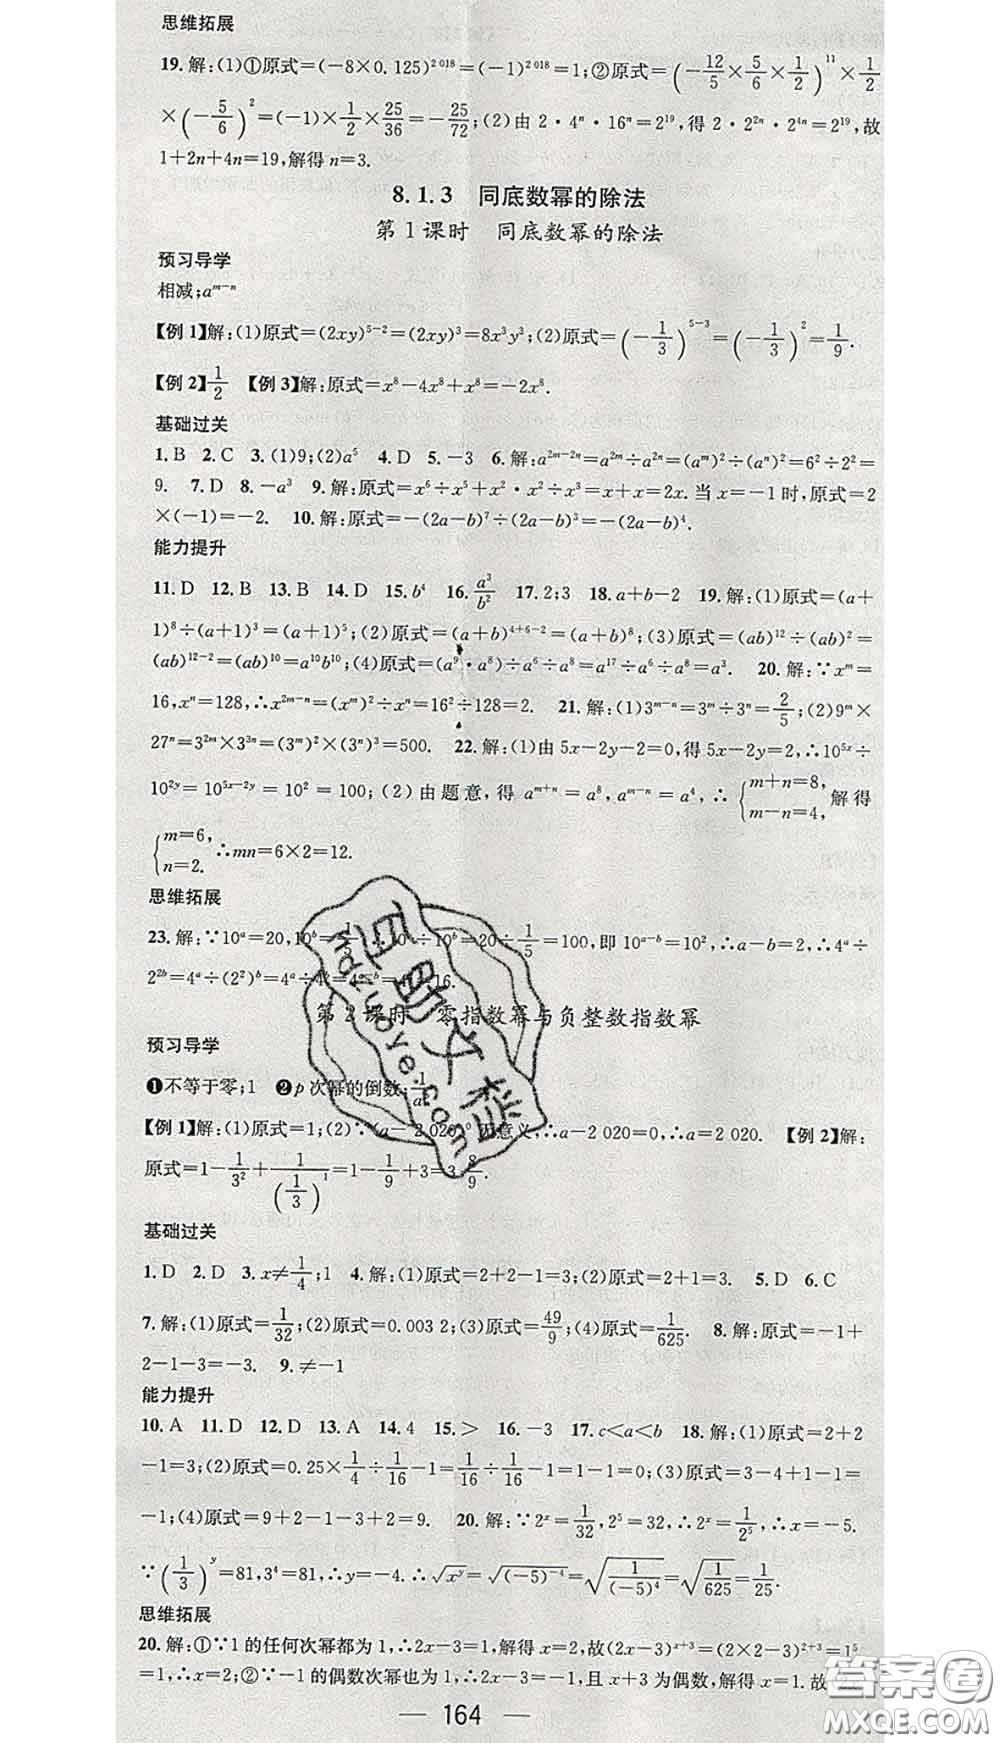 思维拓展
19.解:(1)①原式=(-8×0.125)^{2018}=(-1)^{2018}=1;②原式=(-12/5×5/6×1/2)^{11}×1/2
×(-5/6)^2=(-1)×1/2×25/36=-25/72;(2)由 2·4^n·16^n=2^{19},得 2·2^{2n}·2^{4n}=2^{19},故
1+2n+4n=19,解得 n=3.
8.1.3 同底数幂的除法
第1课时 同底数幂的除法
预习导学
相减;a^{m-n}
【例1】解:(1)原式=(2xy)^{5-2}=(2xy)^3=8x^3y^3;(2)原式=(-1/3)^{5-3}=(-1/3)^2=1/9.
【例2】1/2 【例3】解:原式=x^8-4x^8+x^8=-2x^8.
基础过关
1.B 2.C 3.(1)9;(2)a^5 4.D 5.-3 6.解:a^{2m-2n}=a^{2m}÷a^{2n}=(a^m)^2÷(a^n)^2=6^2÷2^2=
9. 7.D 8.-a^3 9.解:原式=x^6÷x^5+x^2·x^2÷x^3=x+x=2x.当 x=-1 时,原式=2
×(-1)=-2. 10.解:原式=-(2a-b)^7÷(2a-b)^3=-(2a-b)^4.
能力提升
11.D 12.B 13.B 14.D 15.b^4 16.a^3/b^2 17.2;3 18.a+b-2 19.解:(1)原式=(a+
1)^8÷(a+1)^3=(a+1)^5;(2)原式=(a+b)^{4+6-2}=(a+b)^8;(3)原式=(ab)^{12}÷(ab)^2=
(ab)^{12-2}=(ab)^{10}=a^{10}b^{10};(4)原式=(a^9·a^8)÷a^6÷a^8=a^{17}÷a^6÷a^8=a^3. 20.解:∵x^m=
16,x^n=128,∴x^{2m-n}=(x^m)^2÷x^n=16^2÷128=2. 21.解:(1)3^{m-n}=3^m÷3^n=2/5;(2)9^m×
27^n=3^{2m}×3^{3n}=(3^m)^2×(3^n)^3=500. 22.解:(1)由 5x-2y-2=0,得 5x-2y=2,∴10^{5x}÷
10^{2y}=10^{5x-2y}=10^2=100;(2)由题意,得 a^{m+n}=a^8,a^{m-n}=a^4,∴{m+n=8, m-n=4,解得
{m=6, n=2. ∴mn=6×2=12.
思维拓展
23.解:∵10^a=20,10^b=1/5,∴10^a÷10^b=20÷1/5=100,即 10^{a-b}=10^2,∴a-b=2,∴4^a÷
2^{2b}=4^a÷(2^2)^b=4^a÷4^b=4^{a-b}=16.
第2课时 零指数幂与负整数指数幂
预习导学
❶不等于零;1 ❷p 次幂的倒数;
【例1】解:(1)原式=1;(2)∵(a-2 020)^0 无意义,∴a-2 020=0,∴a=2 020. 【例2】解:
原式=1-1/3^2+1/(1/3)^1=1-1/9+3=3 8/9.
基础过关
1.D 2.D 3.x≠1/4;1 4.解:(1)原式=2+2-1=3;(2)原式=2+1=3. 5.D 6.C
7.解:(1)原式=1/32;(2)原式=0.003 2;(3)原式=49/9;(4)原式=1/625. 8.解:原式=-1+
2-1-3=-3. 9.≠-1
能力提升
10.A 11.D 12.D 13.A 14.4 15.> 16.-3 17.c<a<b 18.解:(1)原式=2+2
-1=3;(2)原式=0.25×1/4÷1/16-1=1/16÷1/16-1=1-1=0;(3)原式=3-4+1-1=
-1;(4)原式=9+2-1-3+2=9. 20.解:∵2^x=1/32,2^5=32,∴2^x=1/2^5,∴x=-5.
∵(1/3)^y=81,3^4=81,∴y=-4.∴√(x^y)=√((-5)^{-4})=√(1/(-5)^4)=√(1/625)=1/25.
思维拓展
20.解:①∵1 的任何次幂都为 1,∴2x-3=1,解得 x=2,故(2x-3)^{x+3}=(2×2-3)^{2+3}=1^5
=1,∴x=2;②∵-1 的偶数次幂也为 1,∴2x-3=-1,且 x+3 为偶数,解得 x=1.故(2x
— 164 —
百明文档
Mdrwove.com
答案圈
MXQE.COM